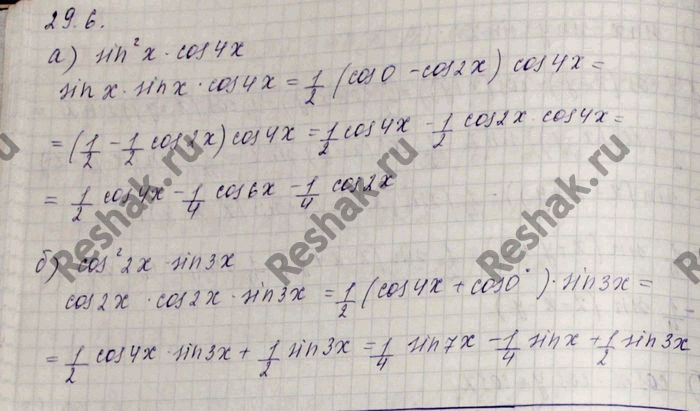 29.6.
а) sin²x · cos4x
sin x · sin x · cos4x = 1/2 (cos0 - cos2x) cos4x =
= (1/2 - 1/2 cos2x) cos4x = 1/2 cos4x - 1/2 cos2x · cos4x =
= 1/2 cos4x - 1/4 cos6x - 1/4 cos2x
б) cos²2x · sin3x
cos2x · cos2x · sin3x = 1/2 (cos4x + cos0°) · sin3x =
= 1/2 cos4x · sin3x + 1/2 sin3x = 1/4 sin7x - 1/4 sinx + 1/2 sin3x
Reshak.ru
Reshak.ru
Reshak.ru